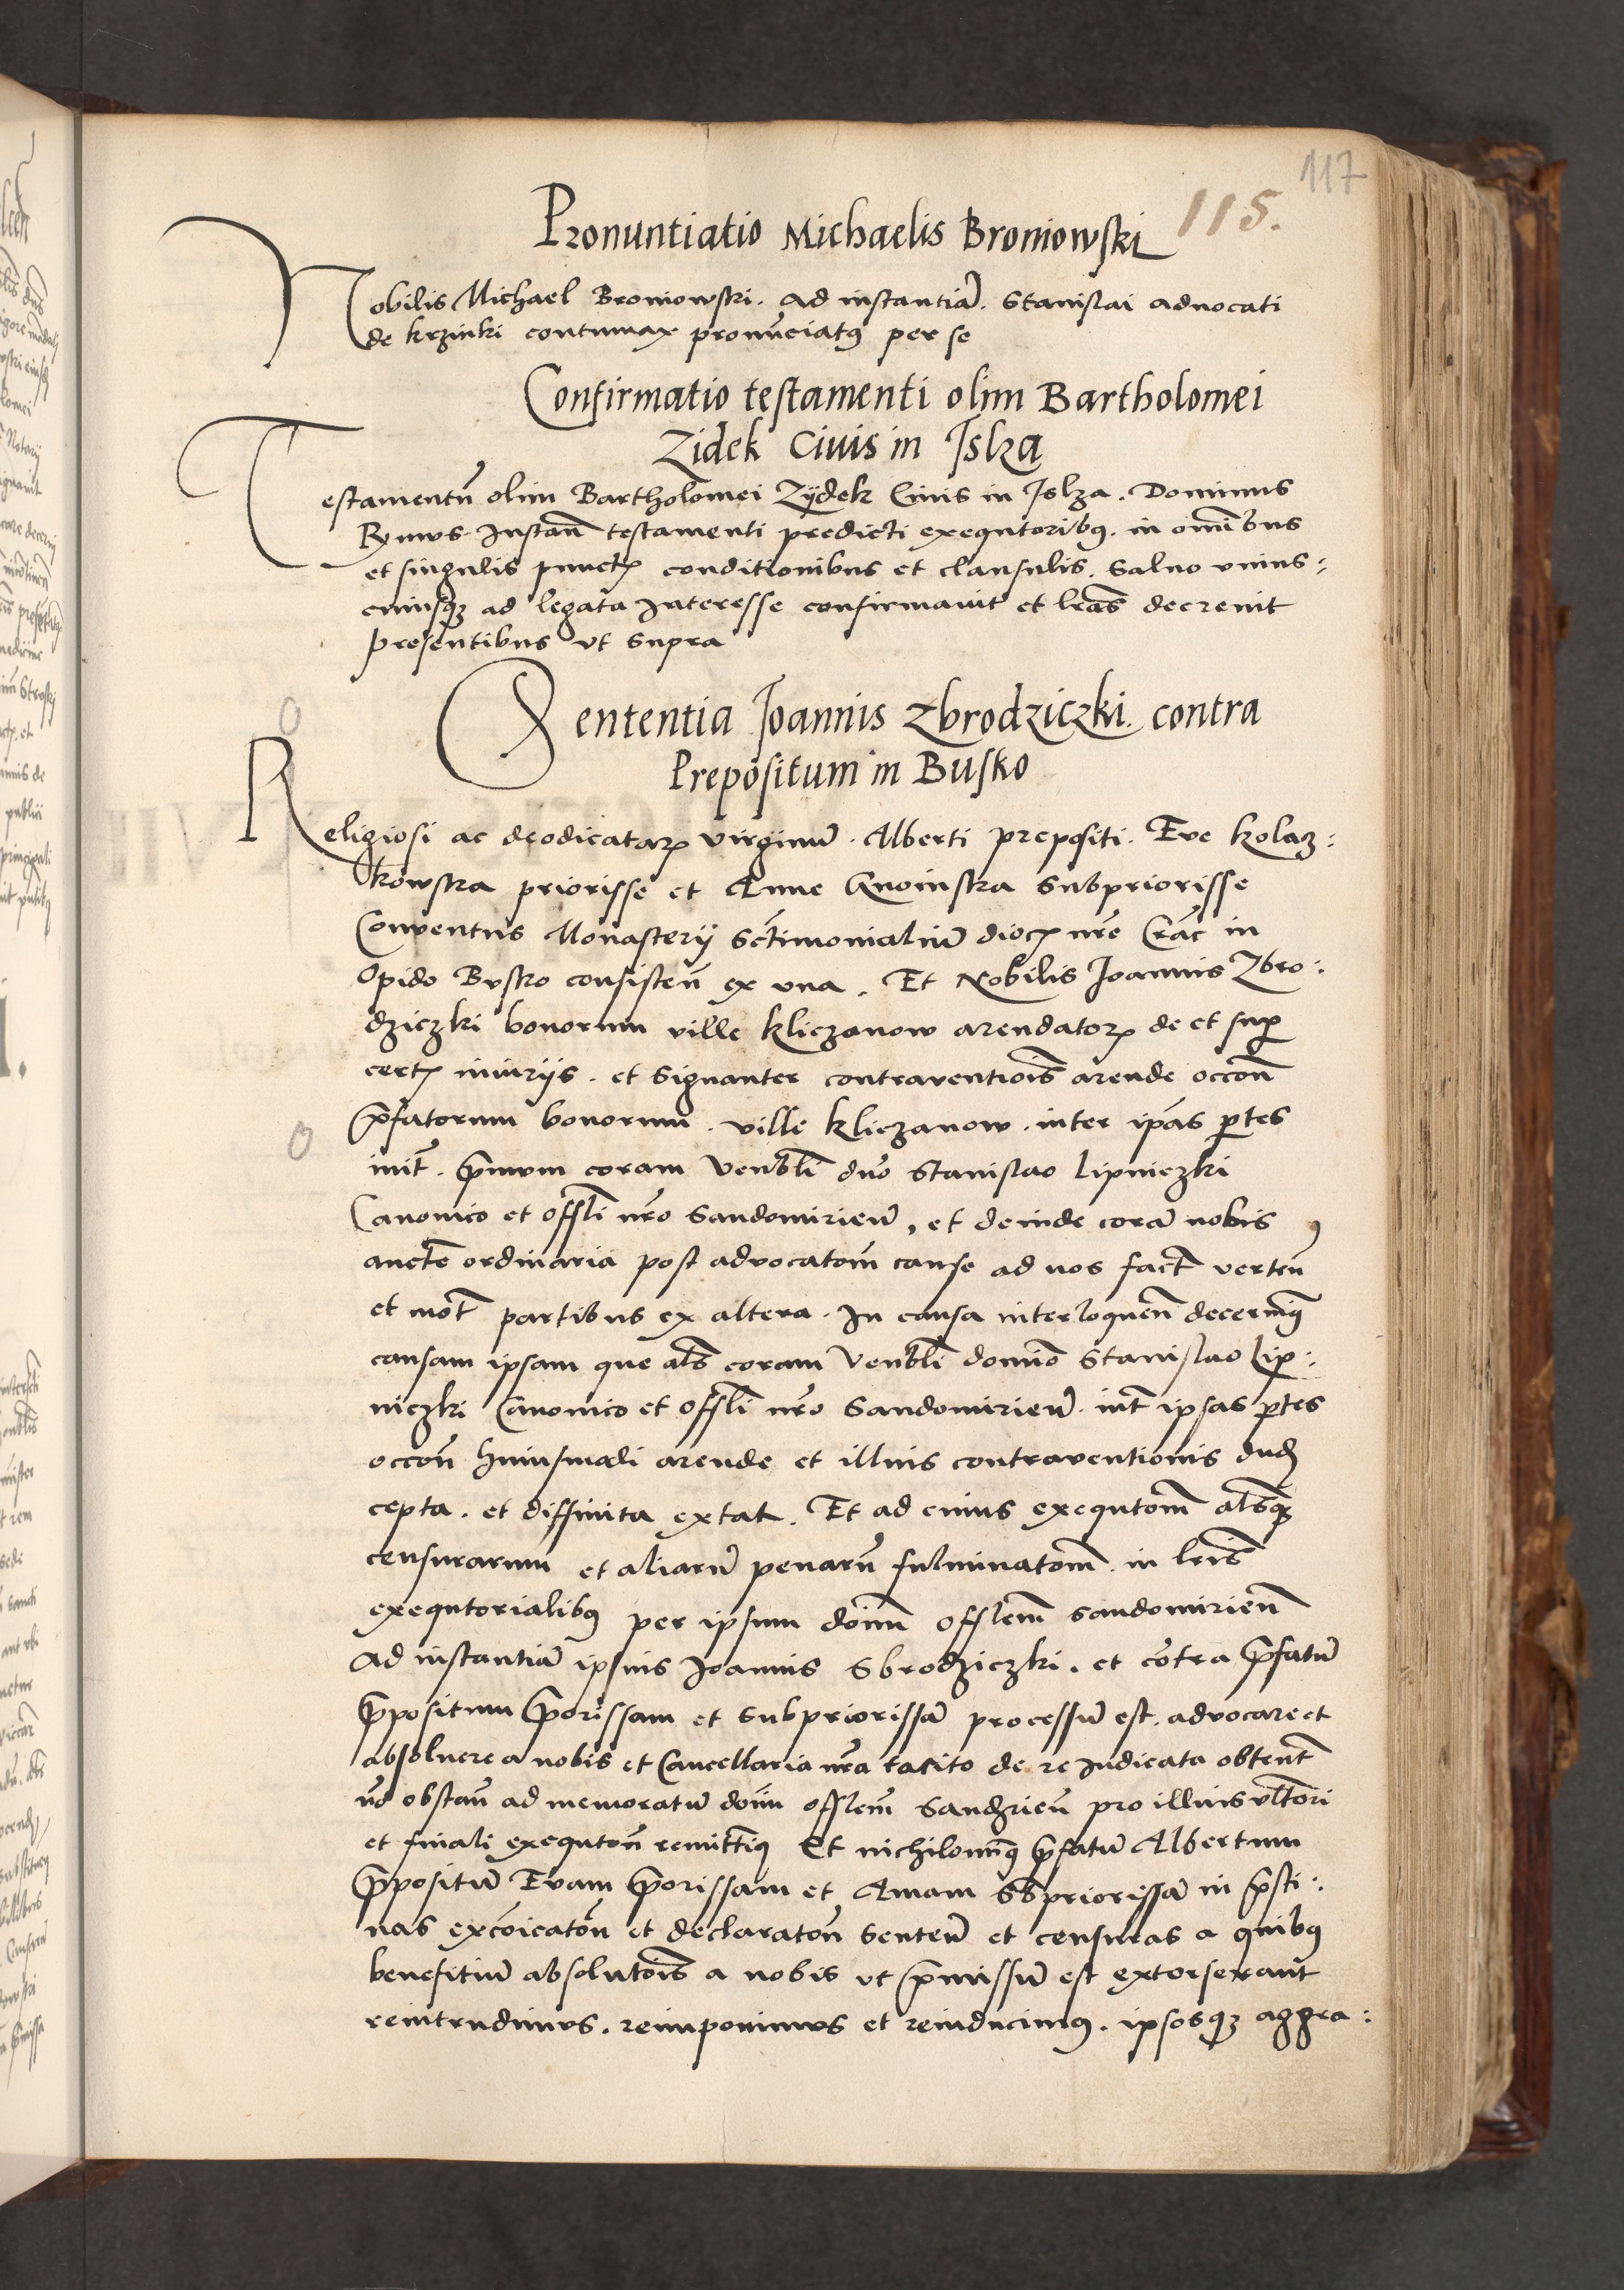 117
115.
Pronuntiatio Michaelis Broniowski
Nobilis Michael Broniowski. Ad instantiã. Stanislai aduocati
de krzinki contumax pronũciatꝰ per se
Confirmatio testamenti olim Bartholomei
Zidek Ciuis in Jslza
Testamentũ olim Bartholomei Zÿdek Ciuis in Jslza. Dominus
R̃mvs. Instañ testamenti predicti exequtoribꝰ. in om̃ibus
et singulis punctꝭ conditionibus et clausulis. saluo vnius:
cuiusqꝫ ad legata Interesse confirmauit et l̃ras decreuit
presentibus vt supra
Sententia Joannis Zbrodziczki. contra
Prepositum in Busko
Religiosi ac deodicataꝝ virginũ. Alberti prepositi. Eve kolacz:
kowska priorisse et Anne Gnoinska Subpriorisse
Conventus Monasterÿ Sc̃timonialiũ dioc̃ nr̃e Crac̃ in
Opido Busko consisteñ ex vna. Et Nobilis Joannis Zbro:
dziczki bonorum ville kliczanow arendatoꝝ de et suꝑ
certꝭ iniurÿs. et signanter contraventiõis arende occõñ
p̃fatorum bonorum. ville kliczanow. inter ip̃as ꝑtes
init̃. p̃mvm coram Ven̾bli dño Stanislao Lipniczki
Canonico et Off̃li nr̃o Sandomirieñ, et deinde corã nobis
auctẽ ordinaria post advocatoñ cause ad nos fact̃ verteñ
et mot̃ partibus ex altera. In causa interloqueñ decernimꝰ
causam ipsam que al̃s coram Ven̾bli domĩo Stanislao Lip:
niczki Canonico et Off̃li nr̃o Sandomirieñ. int̃ ipsas ꝑtes
occõñ huiusmodi arende et illius contraventionis dud̃
cepta. et diffinita extat. Et ad cuius exequtõm al̃sqꝫ
censurarum et aliarũ penarũ fulminatõm. in l̃ris
exequtorialibꝰ per ipsum dom̃ Off̃lem Sandomirieñ
Ad instantiã ipsius Joannis Sbrodziczki. et cõtra p̃fatũ
p̃positum p̃orissam et Subpriorissã processũ est. advocare et
absoluere a nobis et Cancellaria nr̃a tacito de re Iudicata obtent̃
nõ obstañ ad memoratũ dom̃ off̃lem Sandzrieñ pro illius vlt̃ori
et finali exequtoñ remittimꝰ Et nichilomĩꝰ p̃fatũ Albertum
p̃positũ Evam p̃orissam et Annam Sb̃priorissã in p̃sti:
nas excõicatõñ et declaratoñ Senteñ et censuras a quibꝰ
benefitiũ absolutõis a nobis vt p̃missũ est extorserant
reintrudimvs. reimponimvs et reinducimꝰ. ipsosqꝫ aggra: